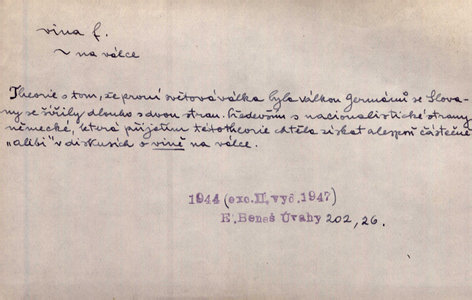 vina f.
~ na válce
Theorie o tom, že první světová válka byla válkou Germánů se Slova-
ny se šířily dlouho s dvou stran. Především s nacionalistické strany
německé, která přijetím této theorie chtěla získat alespoň částečné
„alibi" v diskusích o vině na válce.
1944 (exc. II. vyd. 1947)
E. Beneš Úvahy 202, 26.